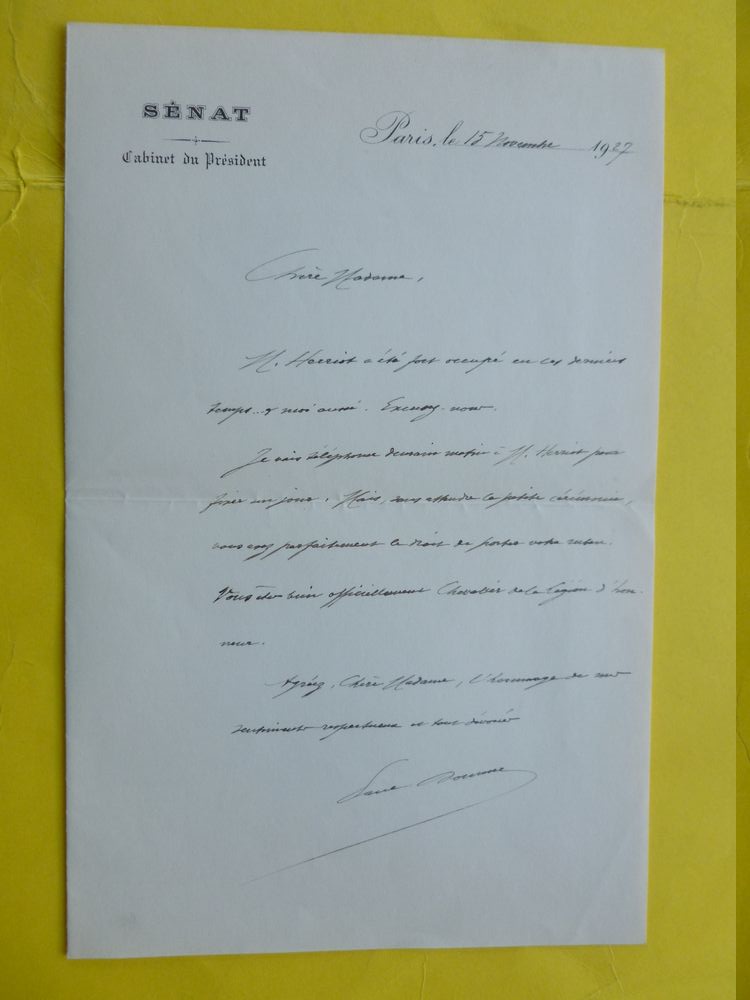 SÉNAT
Cabinet du Président
Paris, le 15 Novembre 1927
Chère Madame,
M. Herriot a été fort occupé en ces derniers
temps.. & moi aussi. Excusez-nous.
Je vais téléphoner demain matin à M. Herriot pour
fixer un jour. Mais, sans attendre la petite cérémonie,
vous avez parfaitement le droit de porter votre ruban.
Vous êtes bien officiellement Chevalier de la Légion d'hon-
neur.
Agréez, Chère Madame, l'hommage de mes
sentiments respectueux et tout dévoués
Paul Doumer